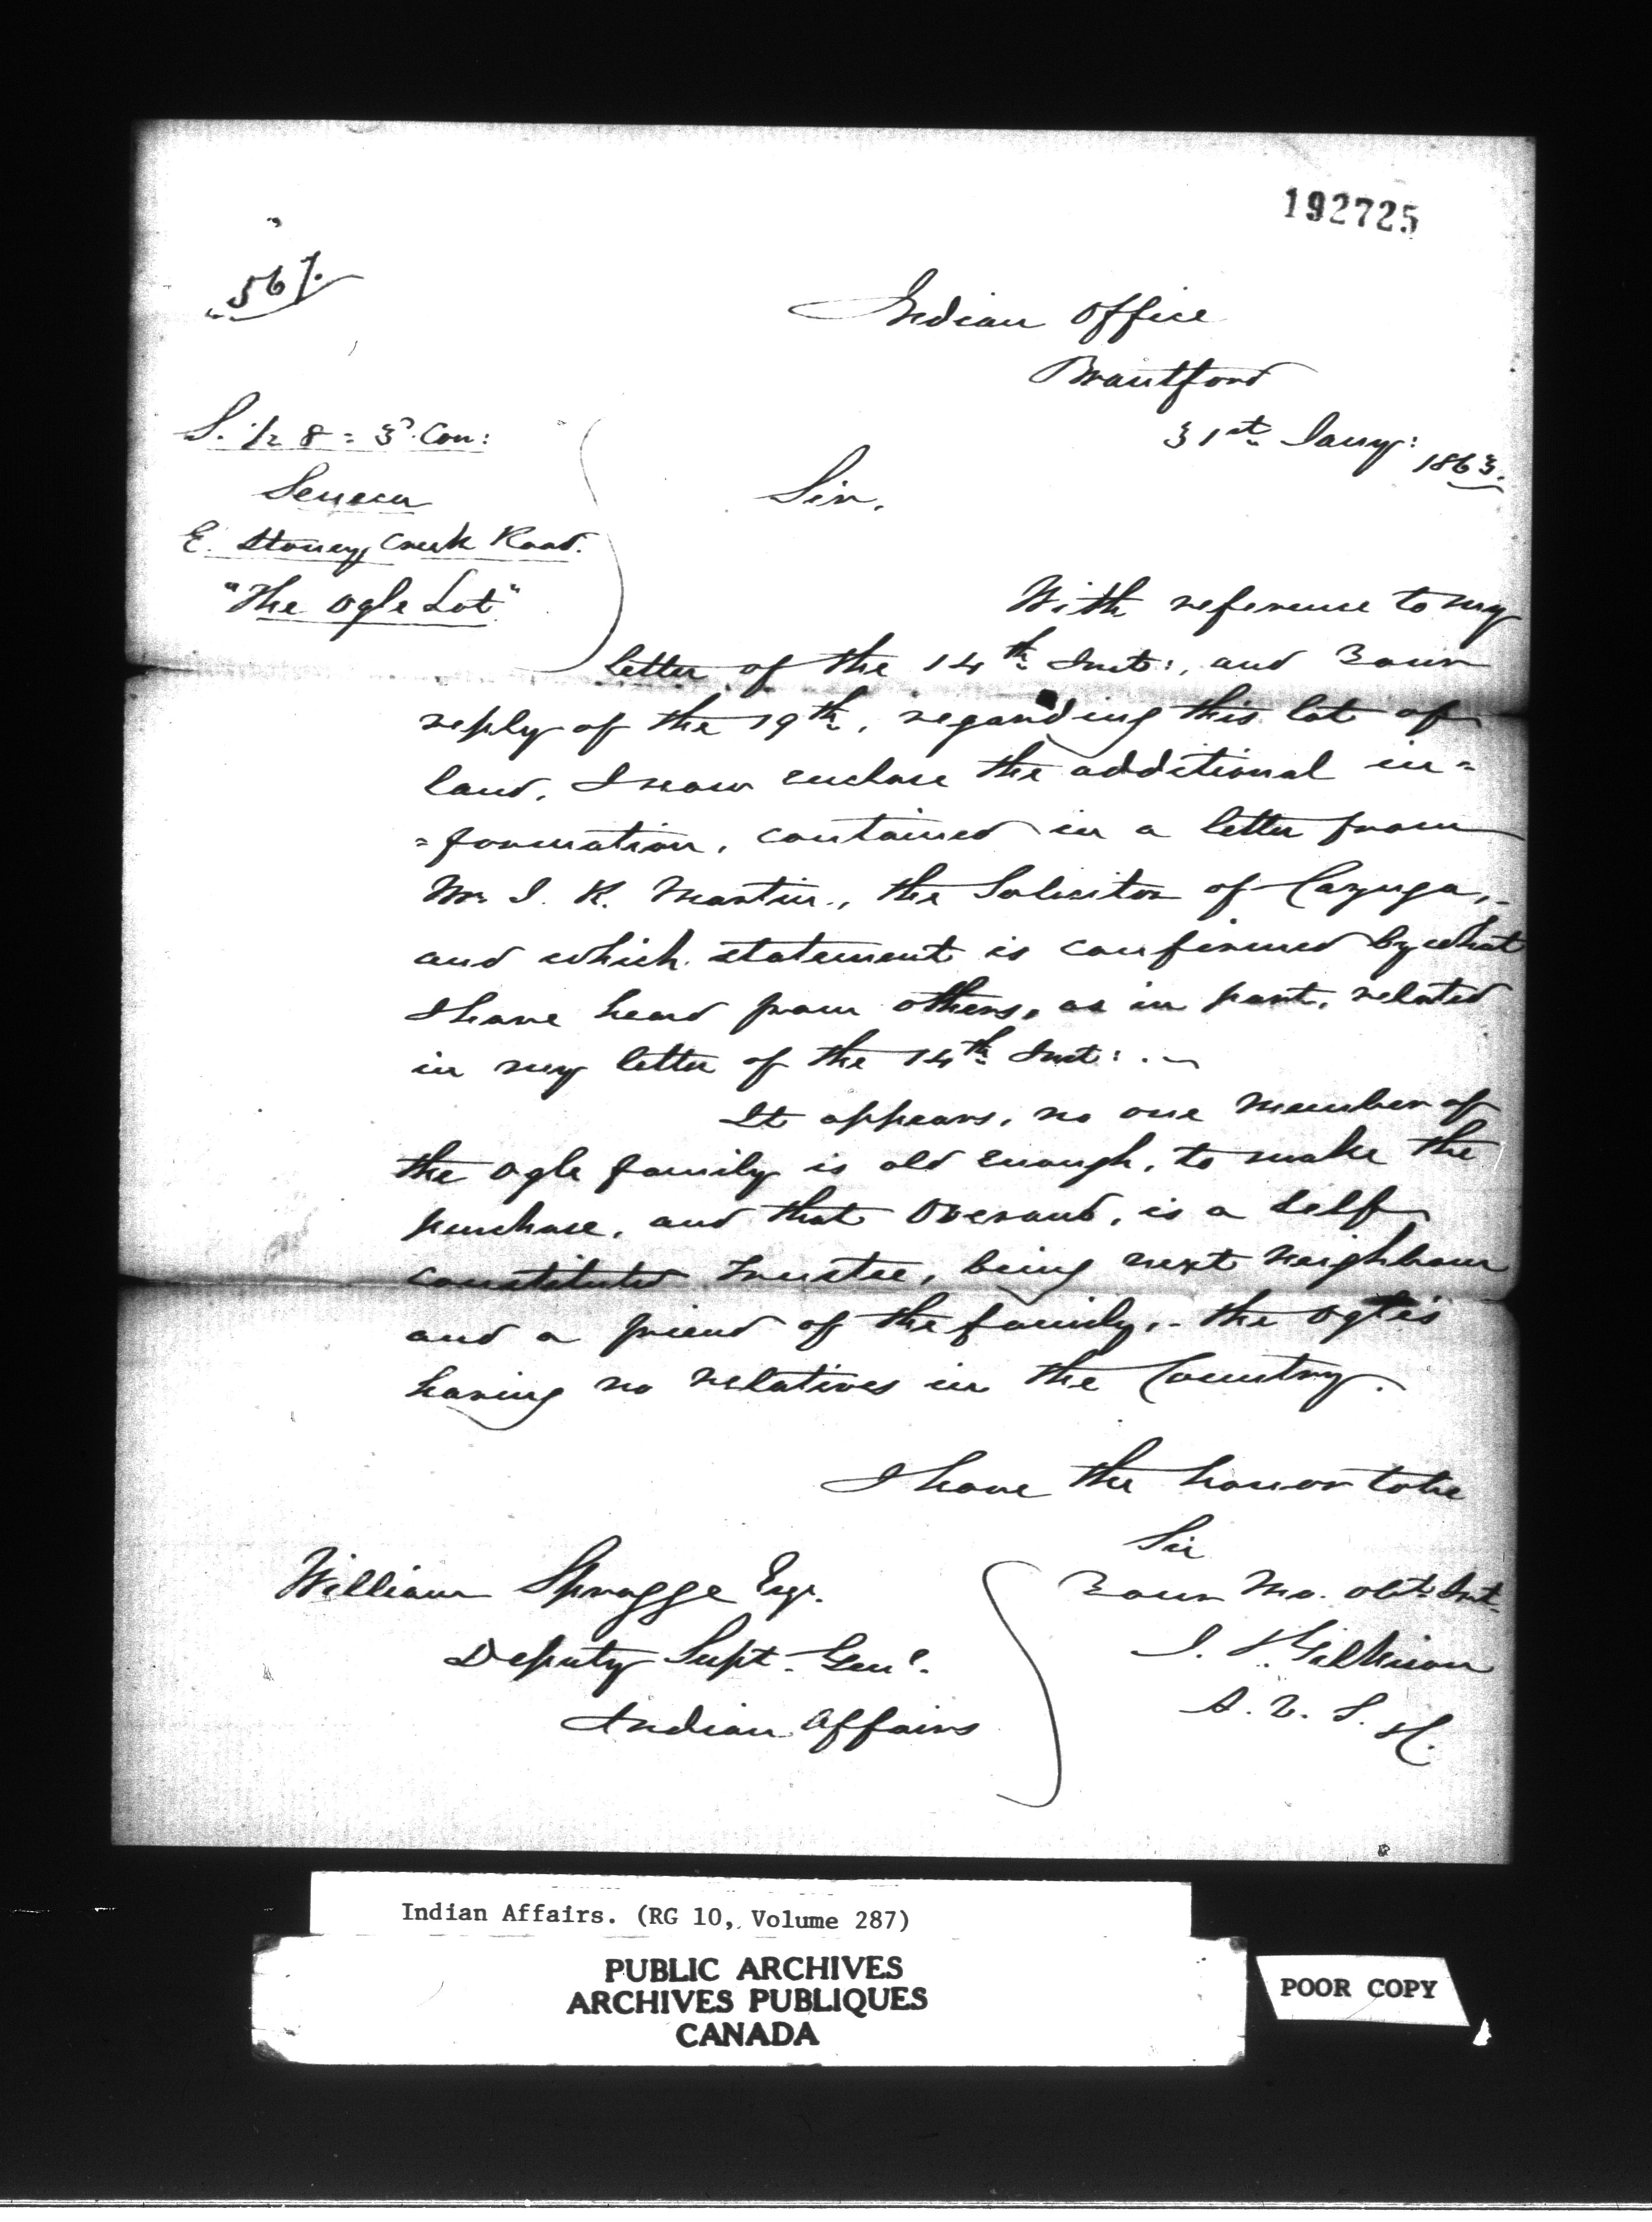 192725
567.
Indian Office
Brantford
31st Jany: 1863.
S. 1/2 8 = 3d Con:
Seneca
E. Stoney Creek Road.
"The Ogle Lot"
Sir,
With reference to my
letter of the 14th Inst:, and Your
reply of the 19th, regarding this lot of
land, I now enclose the additional in=
=formation, contained in a letter from
Mr. I. R. Martin., the Solicitor of Cayuga,-
and which statement is confirmed by what
I have heard from others, as in part, related
in my letter of the 14th Inst: . -
It appears, no one member of
the Ogle family is old enough, to make the
purchase, and that Overand, is a self
constituted Trustee, being next neighbour
and a friend of the family,- the Ogle's
having no relatives in the Country.
I have the honor to be
Sir
Your Mo. Obt. Svt.
J. T. Gilkison
A. V. S. H.
William Spragge Esqr.
Deputy Supt. Genl.
Indian Affairs
Indian Affairs. (RG 10, Volume 287)
PUBLIC ARCHIVES
ARCHIVES PUBLIQUES
CANADA
POOR COPY